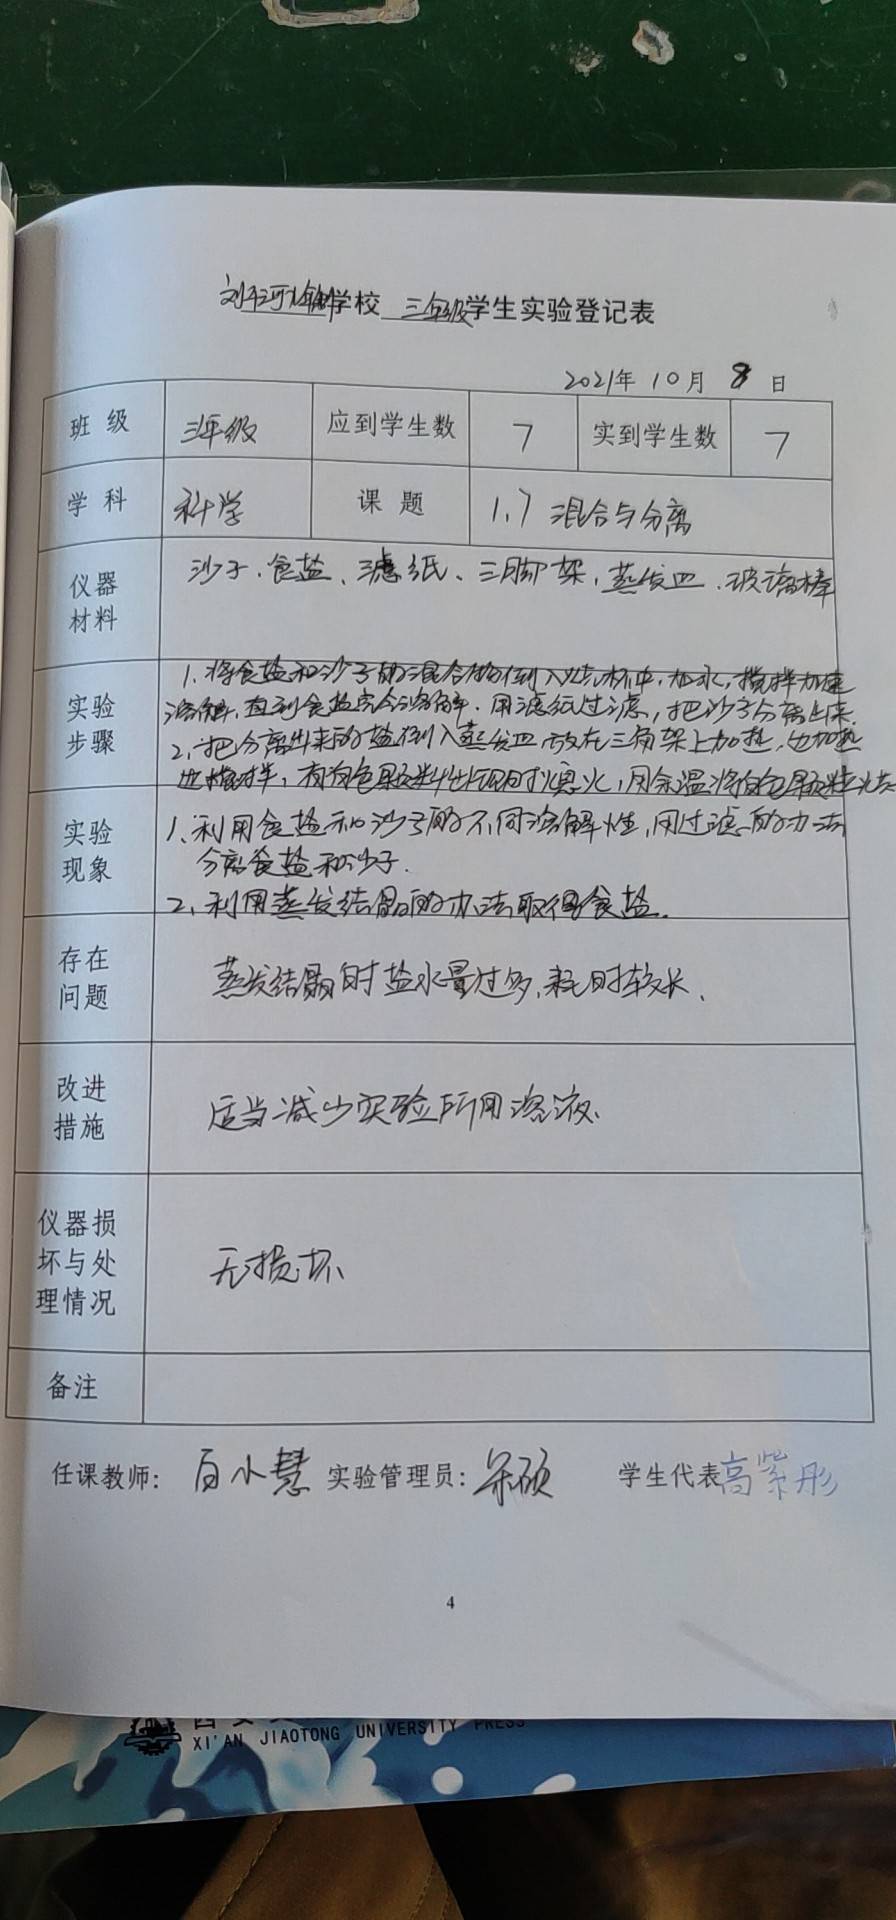 刘平河九年制学校 三年级学生实验登记表
2021年 10月 8 日
班 级 三年级 应到学生数 7 实到学生数 7
学 科 科学 课 题 1.7 混合与分离
仪器材料 沙子、食盐、滤纸、三脚架、蒸发皿、玻璃棒
实验步骤
1、将食盐和沙子的混合物倒入烧杯中,加水,搅拌加速
溶解,直到食盐完全溶解.用滤纸过滤,把沙子分离出来.
2、把分离出来的盐倒入蒸发皿放在三角架上加热,边加热
边搅拌,有白色颗粒出现时熄火,用余温将白色颗粒
实验现象
1、利用食盐和沙子的不同溶解性,用过滤的办法
分离食盐和沙子.
2、利用蒸发结晶的办法取得食盐.
存在问题 蒸发结晶时盐水量过多,耗时较长.
改进措施 适当减少实验所用溶液.
仪器损坏与处理情况 无损坏
备注
任课教师: 白小慧 实验管理员: 学生代表 高紫彤
4
XI'AN JIAOTONG UNIVERSITY PRESS